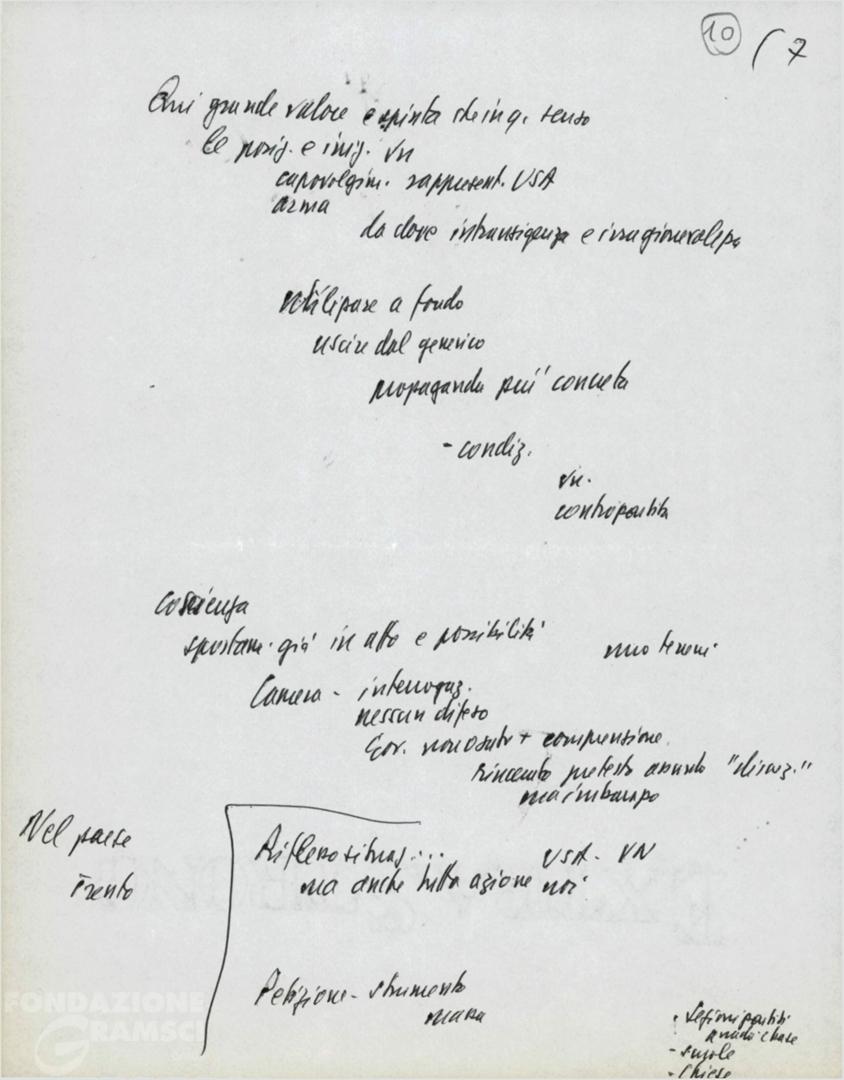 10 / 7
Qui grande valore e spinta che in q. senso
le posiz. e iniz. VN
capovolgim. rappresent. USA
arma
da dove intransigenza e irragionevolezza
utilizzare a fondo
uscire dal generico
propaganda più concreta
- condiz.
VN.
contropartita
coscienza
spostam. già in atto e possibilità
Camera - interrogaz.
nessun difeso
Gov. non osato + comprensione
pretesto assurdo "discuz."
ma imbarazzo
Nel paese
Trento
Riflesso situaz...
USA - VN
ma anche tutta azione noi
Petizione - strumento
massa
- sezioni partiti
- scuole
- chiese
FONDAZIONE
GRAMSCI